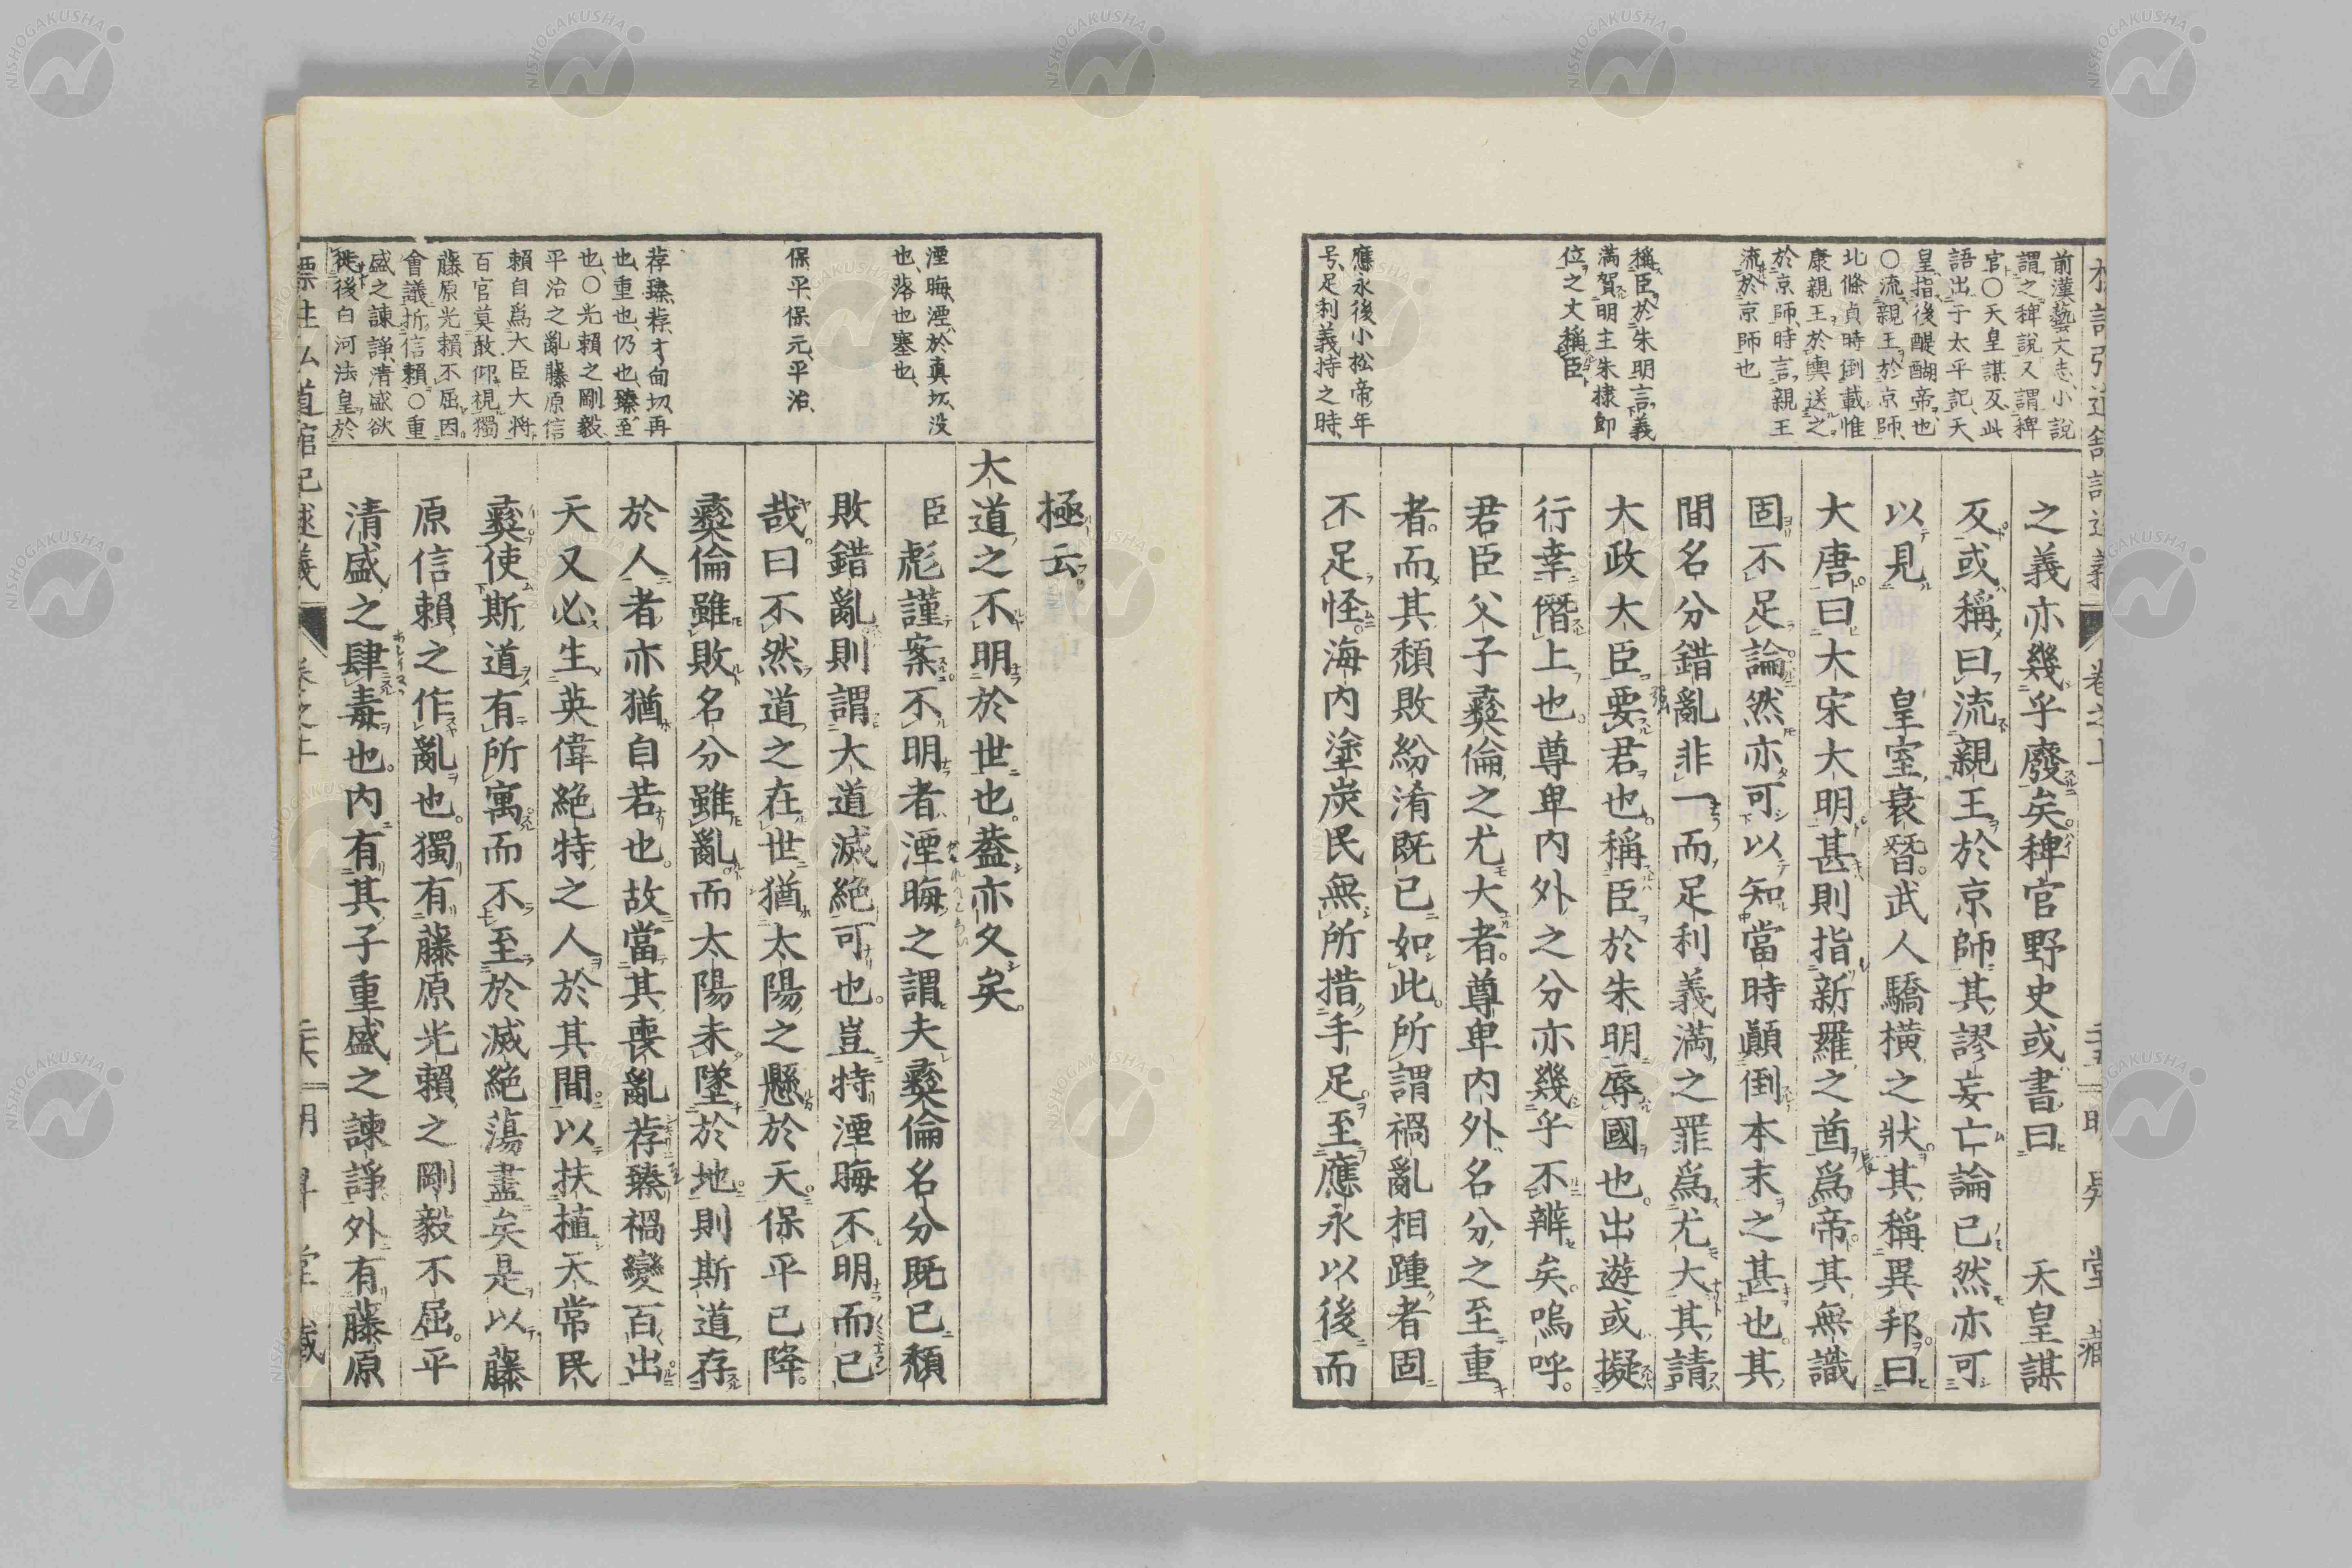 前漢藝文志、小說
謂之稗說又謂稗
官〇天皇謀反此
語出于太平記、天
皇指後醍醐帝也
〇流親王於京師、
北條貞時倒載惟
康親王於輿送之
於京師、時言親王
流於京師也
稱臣於朱明言義
滿賀明主朱棣即
位之文稱臣
應永後小松帝年
号、足利義持之時、
之義亦幾乎廢矣稗官野史或書曰 天皇謀
反或稱曰流親王於京師其謬妄亡論已然亦可
以見 皇室衰替武人驕橫之狀其稱異邦曰
大唐曰大宋大明甚則指新羅之酋爲帝其無識
固不足論然亦可以知當時顚倒本末之甚也其
間名分錯亂非一而足利義滿之罪爲尤大其請
大政大臣要君也稱臣於朱明辱國也出遊或擬
行幸僭上也尊卑內外之分亦幾乎不辨矣嗚呼
君臣父子彝倫之尤大者尊卑內外名分之至重
者而其頹敗紛淆既已如此所謂禍亂相踵者固
不足怪海內塗炭民無所措手足至應永以後而
湮晦、湮、於眞切、沒
也、落也塞也、
保平、保元、平治、
荐臻、荐、才甸切、再
也、重也、仍也、臻至
也、〇光賴之剛毅
平治之亂藤原信
賴自爲大臣大將
百官莫敢仰視獨
藤原光賴不屈因
會議折信賴〇重
盛之諫諍、清盛欲
徙後白河法皇於
極云
大道之不明於世也蓋亦久矣
臣彪謹案不明者湮晦之謂夫彝倫名分既已頹
敗錯亂則謂大道滅絕可也豈特湮晦不明而已
哉曰不然道之在世猶太陽之懸於天保平已降
彝倫雖敗名分雖亂而太陽未墜於地則斯道存
於人者亦猶自若也故當其喪亂荐臻禍變百出
天又必生英偉絕特之人於其間以扶植天常民
彝使斯道有所寓而不至於滅絕蕩盡矣是以藤
原信賴之作亂也獨有藤原光賴之剛毅不屈平
清盛之肆毒也內有其子重盛之諫諍外有藤原